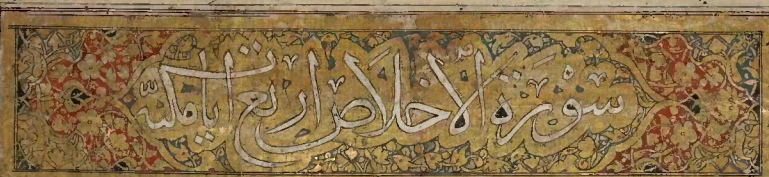 سُوْرَةُ الْاِخْلَاصِ اربع اٰيات مكيّة